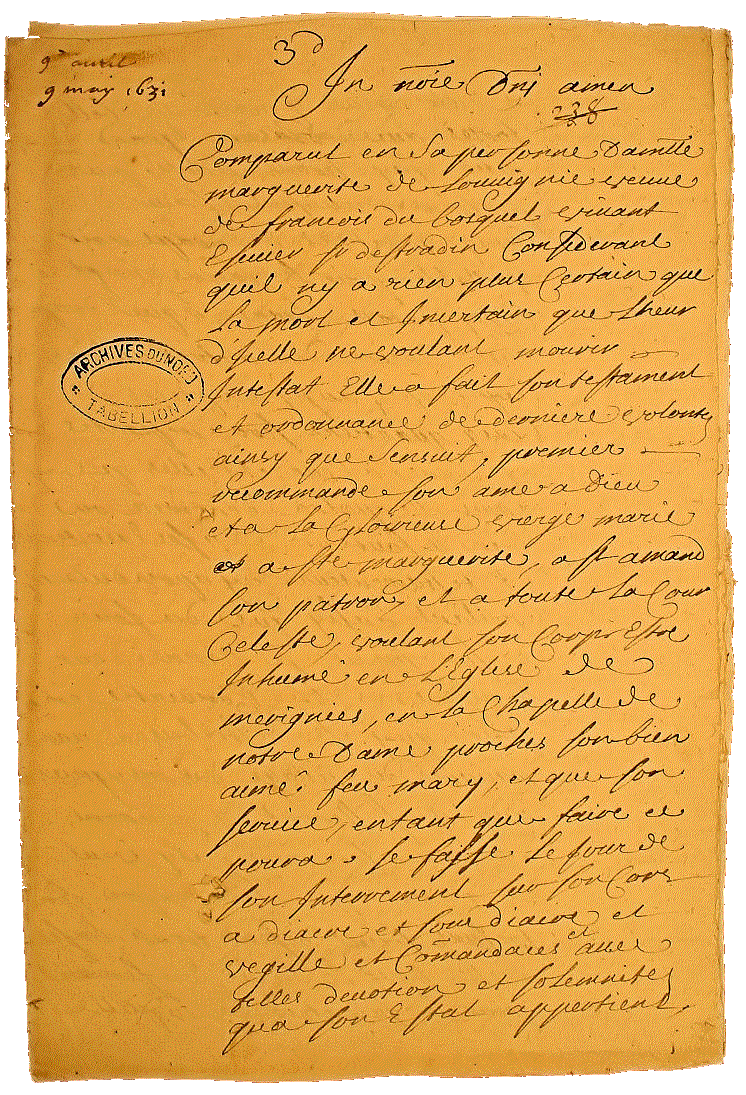 9e avril
9 may 1631
3d
In nōie Dni amen
238
Comparut en sa personne Damlle
marguerite de Louvignie vefve
de francois du bosquel vivant
Escuier sr destradin Considerant
quil ny a rien plus Certain que
La mort et Incertain que Lheur
d'Icelle ne voulant mourir
Intestat Elle a fait son testament
et ordonnance de derniere volonte
ainsy que sensuit, premier
recommande son ame a Dieu
et a La Glorieuse vierge marie
et a ste marguerite, a st amand
son patron, et a toute La Cour
Celeste, voulant son Corps Estre
Inhumé en L'Eglise de
merignies, en La Chapelle de
notre Dame proches son bien
aimé feu mary, et que son
service, en tant que faire ce
poura se fasse Le jour de
son Interrement sur son Corps
a diacre et sous diacre et
vegille et Comandaces et avec
telles devotion et solemnitez
qua son Estat appertient,
ARCHIVES DU NORD
TABELLION